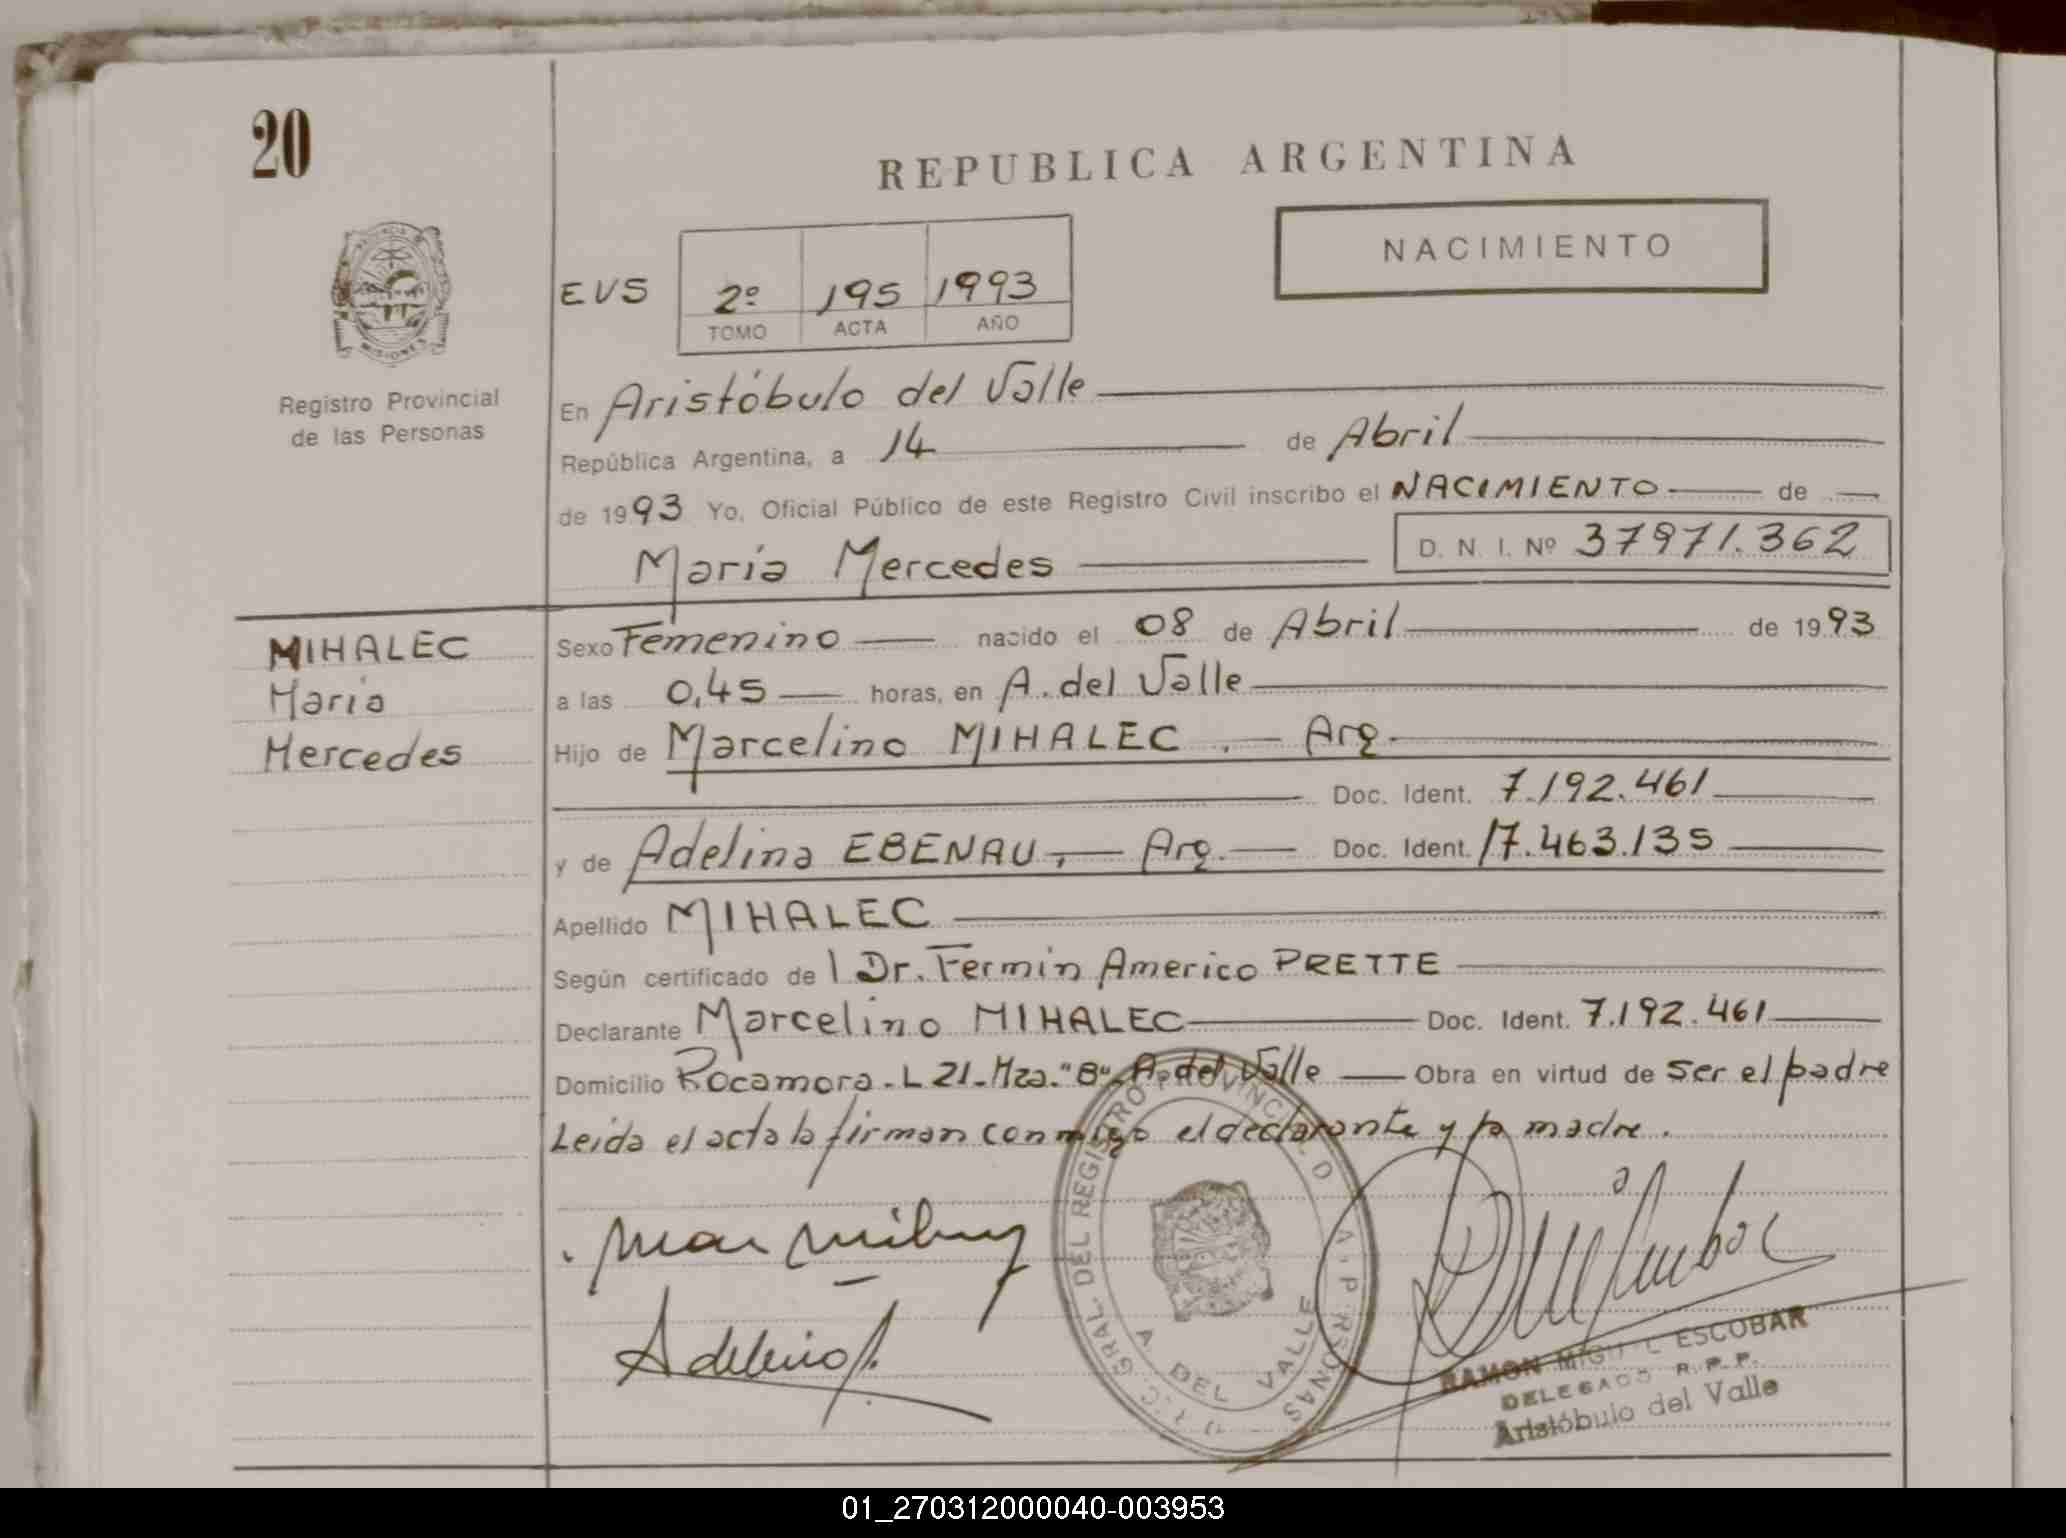 20
REPUBLICA ARGENTINA
NACIMIENTO
EVS 2º 195 1993
TOMO ACTA AÑO
PROVINCIA DE MISIONES
Registro Provincial
de las Personas
En Aristóbulo del Valle
República Argentina, a 14 de Abril
de 1993 Yo, Oficial Público de este Registro Civil inscribo el NACIMIENTO de
María Mercedes D. N. I. Nº 37971.362
MIHALEC
María
Mercedes
Sexo Femenino nacido el 08 de Abril de 1993
a las 0,45 horas, en A. del Valle
Hijo de Marcelino MIHALEC . Arg.
Doc. Ident. 7.192.461
y de Adelina EBENAU, Arg. Doc. Ident. 17.463.135
Apellido MIHALEC
Según certificado de l Dr. Fermín Americo PRETTE
Declarante Marcelino MIHALEC Doc. Ident. 7.192.461
Domicilio Rocamora - L 21 - Mza. "B" - A. del Valle Obra en virtud de ser el padre
Leída el acta la firman conmigo el declarante y la madre.
DEL REGISTRO PROVINCIAL D
GRAL.
A DEL VALLE
RAMON MIGUEL ESCOBAR
DELEGADO R.P.P.
Aristóbulo del Valle
01_270312000040-003953